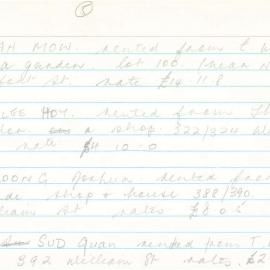 5
AH MOW. rented from E. W
a garden. lot 100. (near N
st. rate £14.11.8
LEE HOY. rented from
a shop. 322/324
rate £4 10.0
GOONG Joshua. rented from
shop & house 388/390.
William St rates £8.0.5
SUD Quan rented from T.
392 William St rates. £2